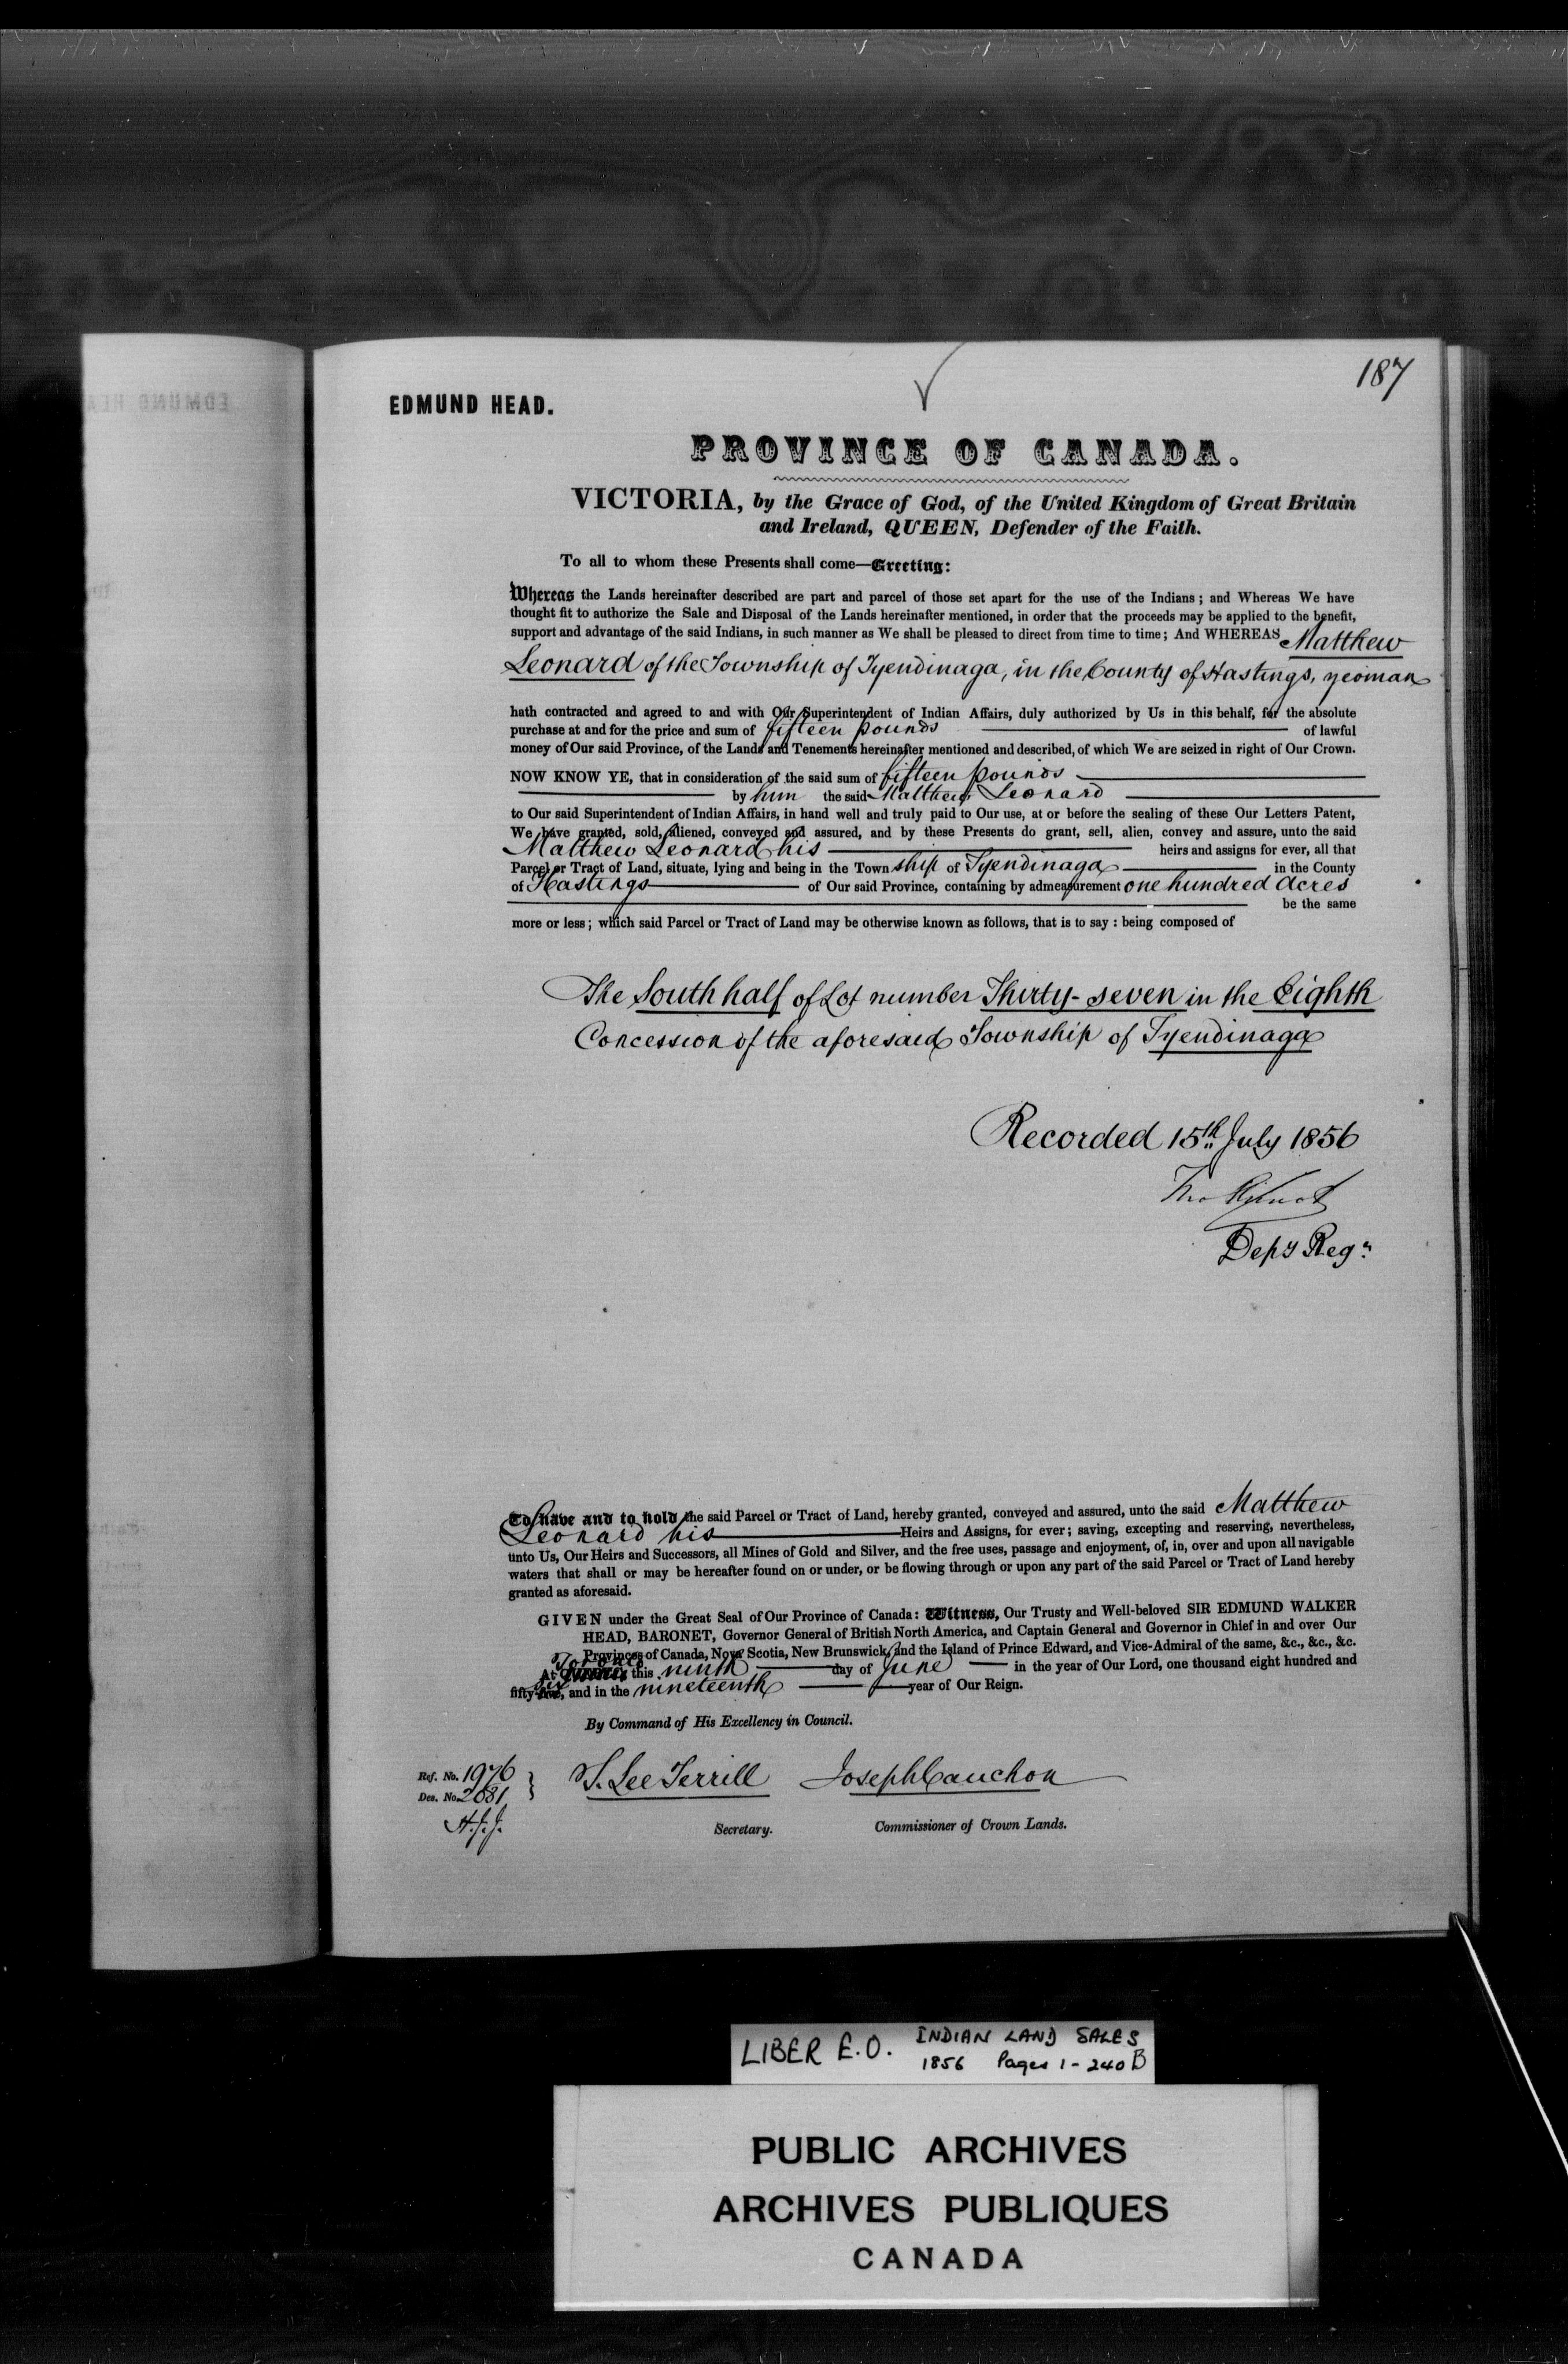 187
EDMUND HEAD.
PROVINCE OF CANADA.
VICTORIA, by the Grace of God, of the United Kingdom of Great Britain
and Ireland, QUEEN, Defender of the Faith.
To all to whom these Presents shall come—Greeting:
Whereas the Lands hereinafter described are part and parcel of those set apart for the use of the Indians; and Whereas We have
thought fit to authorize the Sale and Disposal of the Lands hereinafter mentioned, in order that the proceeds may be applied to the benefit,
support and advantage of the said Indians, in such manner as We shall be pleased to direct from time to time; And WHEREAS Matthew
Leonard of the Township of Tyendinaga, in the County of Hastings, yeoman
hath contracted and agreed to and with Our Superintendent of Indian Affairs, duly authorized by Us in this behalf, for the absolute
purchase at and for the price and sum of fifteen pounds of lawful
money of Our said Province, of the Lands and Tenements hereinafter mentioned and described, of which We are seized in right of Our Crown.
NOW KNOW YE, that in consideration of the said sum of fifteen pounds
by him the said Matthew Leonard
to Our said Superintendent of Indian Affairs, in hand well and truly paid to Our use, at or before the sealing of these Our Letters Patent,
We have granted, sold, aliened, conveyed and assured, and by these Presents do grant, sell, alien, convey and assure, unto the said
Matthew Leonard his heirs and assigns for ever, all that
Parcel or Tract of Land, situate, lying and being in the Town ship of Tyendinaga in the County
of Hastings of Our said Province, containing by admeasurement one hundred Acres
be the same
more or less; which said Parcel or Tract of Land may be otherwise known as follows, that is to say: being composed of
The South half of Lot number Thirty-seven in the Eighth
Concession of the aforesaid Township of Tyendinaga
Recorded 15th July 1856
Depy Regr
To have and to hold the said Parcel or Tract of Land, hereby granted, conveyed and assured, unto the said Matthew
Leonard his Heirs and Assigns, for ever; saving, excepting and reserving, nevertheless,
unto Us, Our Heirs and Successors, all Mines of Gold and Silver, and the free uses, passage and enjoyment, of, in, over and upon all navigable
waters that shall or may be hereafter found on or under, or be flowing through or upon any part of the said Parcel or Tract of Land hereby
granted as aforesaid.
GIVEN under the Great Seal of Our Province of Canada: Witness, Our Trusty and Well-beloved SIR EDMUND WALKER
HEAD, BARONET, Governor General of British North America, and Captain General and Governor in Chief in and over Our
Provinces of Canada, Nova Scotia, New Brunswick, and the Island of Prince Edward, and Vice-Admiral of the same, &c., &c., &c.
At Toronto this ninth day of June in the year of Our Lord, one thousand eight hundred and
fifty-six, and in the nineteenth year of Our Reign.
By Command of His Excellency in Council.
Ref. No. 1976
Des. No. 2681
T. Lee Terrill Joseph Cauchon
Secretary. Commissioner of Crown Lands.
LIBER E.O. INDIAN LAND SALES
1856 Pages 1-240B
PUBLIC ARCHIVES
ARCHIVES PUBLIQUES
CANADA